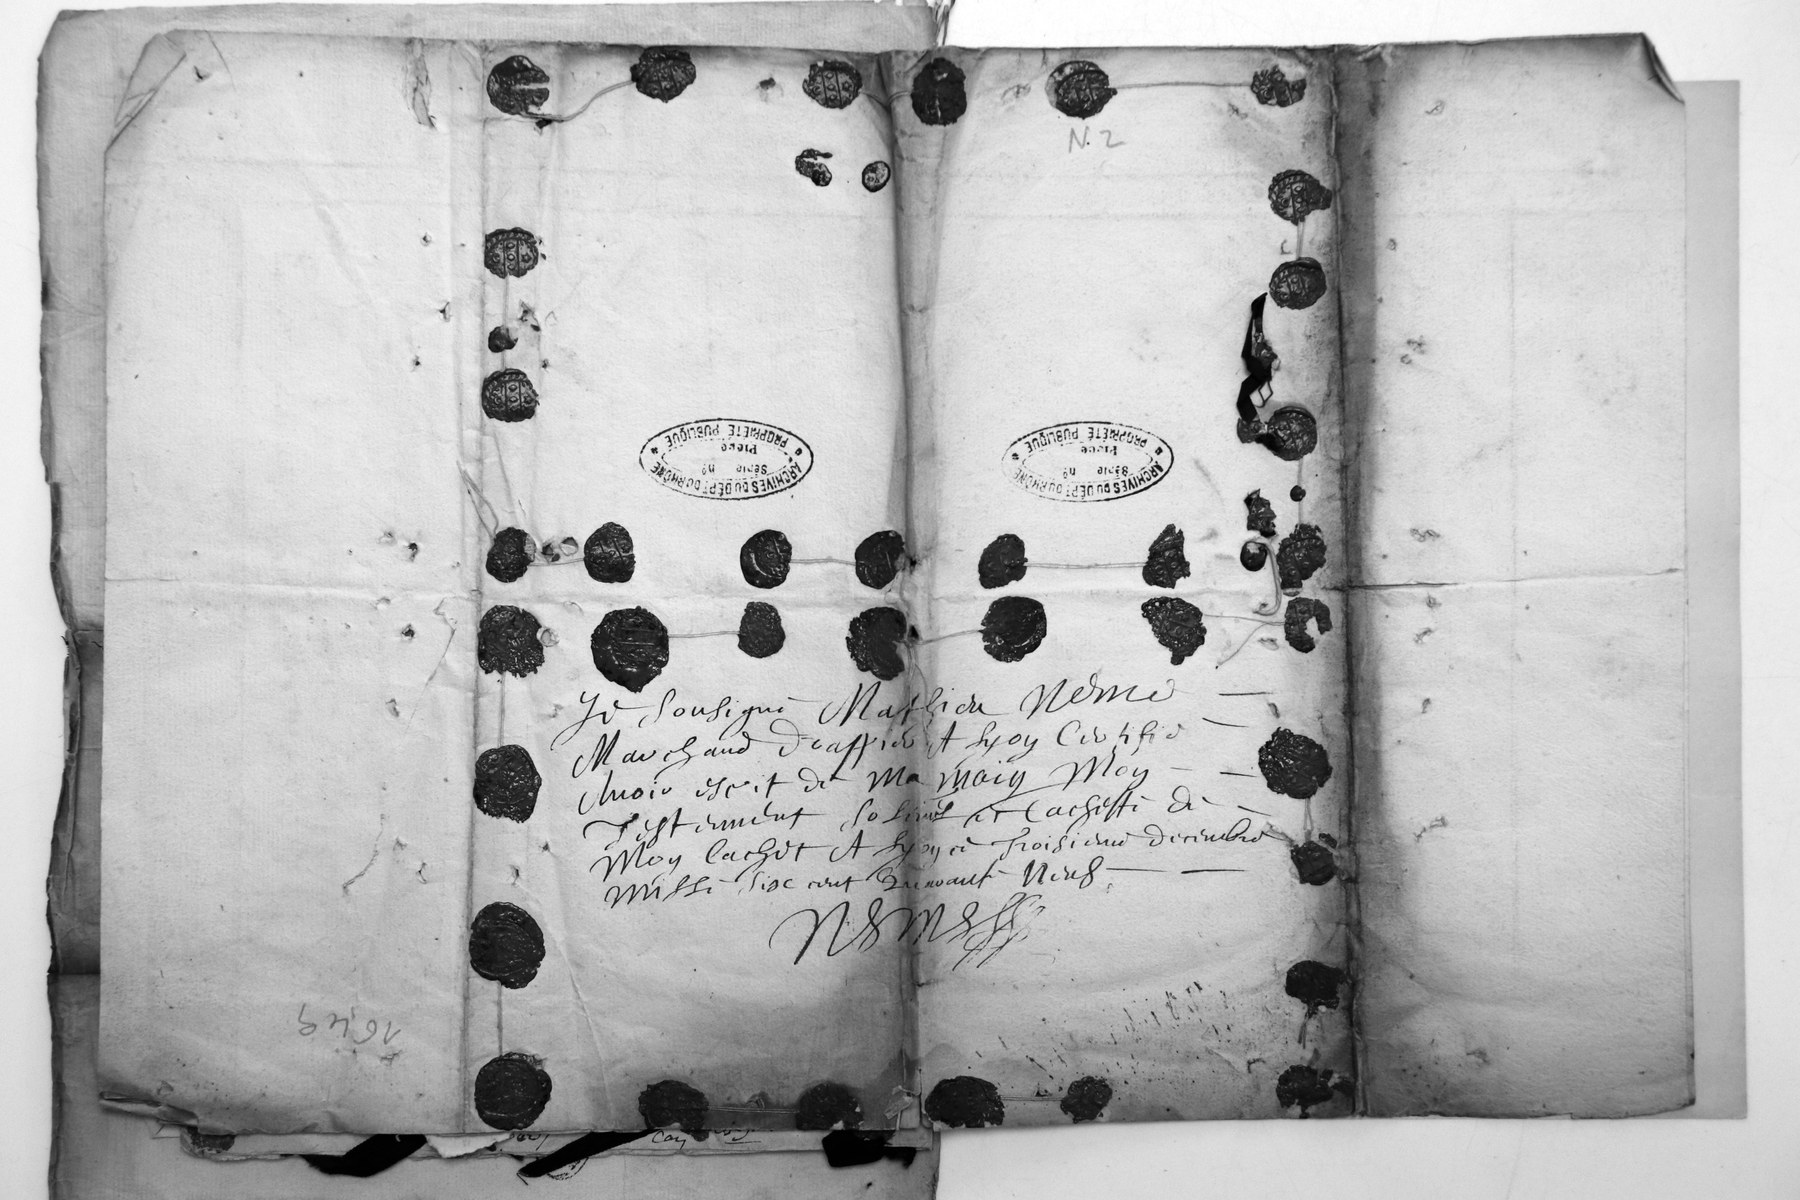 N. 2
ARCHIVES DU DÉPT DU RHÔNE
Série nº
Pièce
PROPRIÉTÉ PUBLIQUE
ARCHIVES DU DÉPT DU RHÔNE
Série nº
Pièce
PROPRIÉTÉ PUBLIQUE
Je Sousigné Mathieu Neme
Marchand Drappier A Lyon Certiffie
Avoir escrit de Ma Main Moy
Testement Solinel et Cachetté de
Moy Cachet A Lyon ce Troisieme decembre
Mille Six cent Neuf
Neme